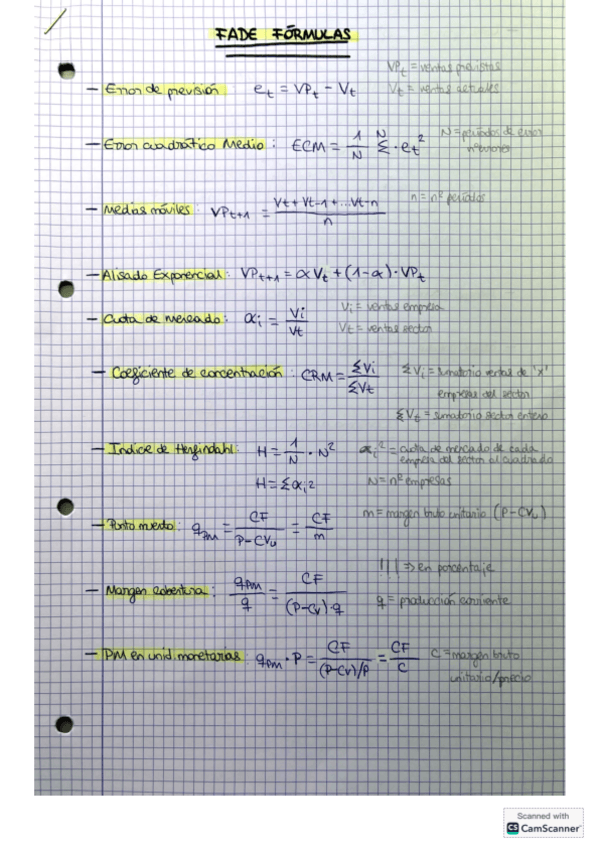 FADE FÓRMULAS
VPt = ventas previstas
— Error de previsión : et = VPt - Vt Vt = ventas actuales
— Error cuadrático Medio : ECM = 1/N N Σ · et² N = períodos de error
nº errores
— Medias móviles : VPt+1 = Vt + Vt-1 + ...Vt-n / n n = nº períodos
— Alisado Exponencial : VPt+1 = α Vt + (1-α) · VPt
— Cuota de mercado : αi = Vi/Vt Vi = ventas empresa
Vt = ventas sector
— Coeficiente de concentración : CRM = ΣVi/ΣVt ΣVi = sumatorio ventas de 'x'
empresas del sector
ΣVt = sumatorio sector entero
— Índice de Herfindahl : H = 1/N · N² αi² = cuota de mercado de cada
empresa del sector al cuadrado
H = Σαi2 N = nº empresas
— Punto muerto : qPM = CF/P-CVu = CF/m m = margen bruto unitario (P-CVu)
!!! => en porcentaje
— Margen cobertura : qPM/q = CF/(P-CV)·q q = producción corriente
— PM en unid. monetarias : qPM · P = CF/(P-CV)/P = CF/C C = margen bruto
unitario/precio
Scanned with
CS CamScanner